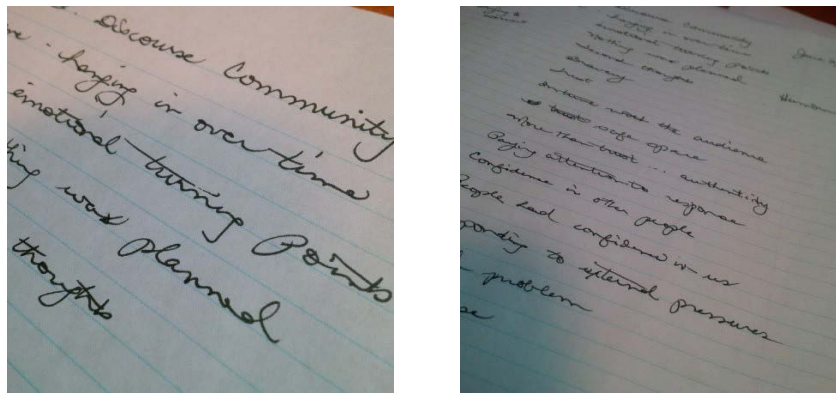 Discourse Community
hanging in over time
emotional turning Points
thing was planned
thoughts
Community
hanging in over time
emotional turning points
nothing was planned
second thoughts
honest
the audience
safe space
more than ... authenticity
Paying attention to response
Confidence in other people
People had confidence in us
to external pressures
problem